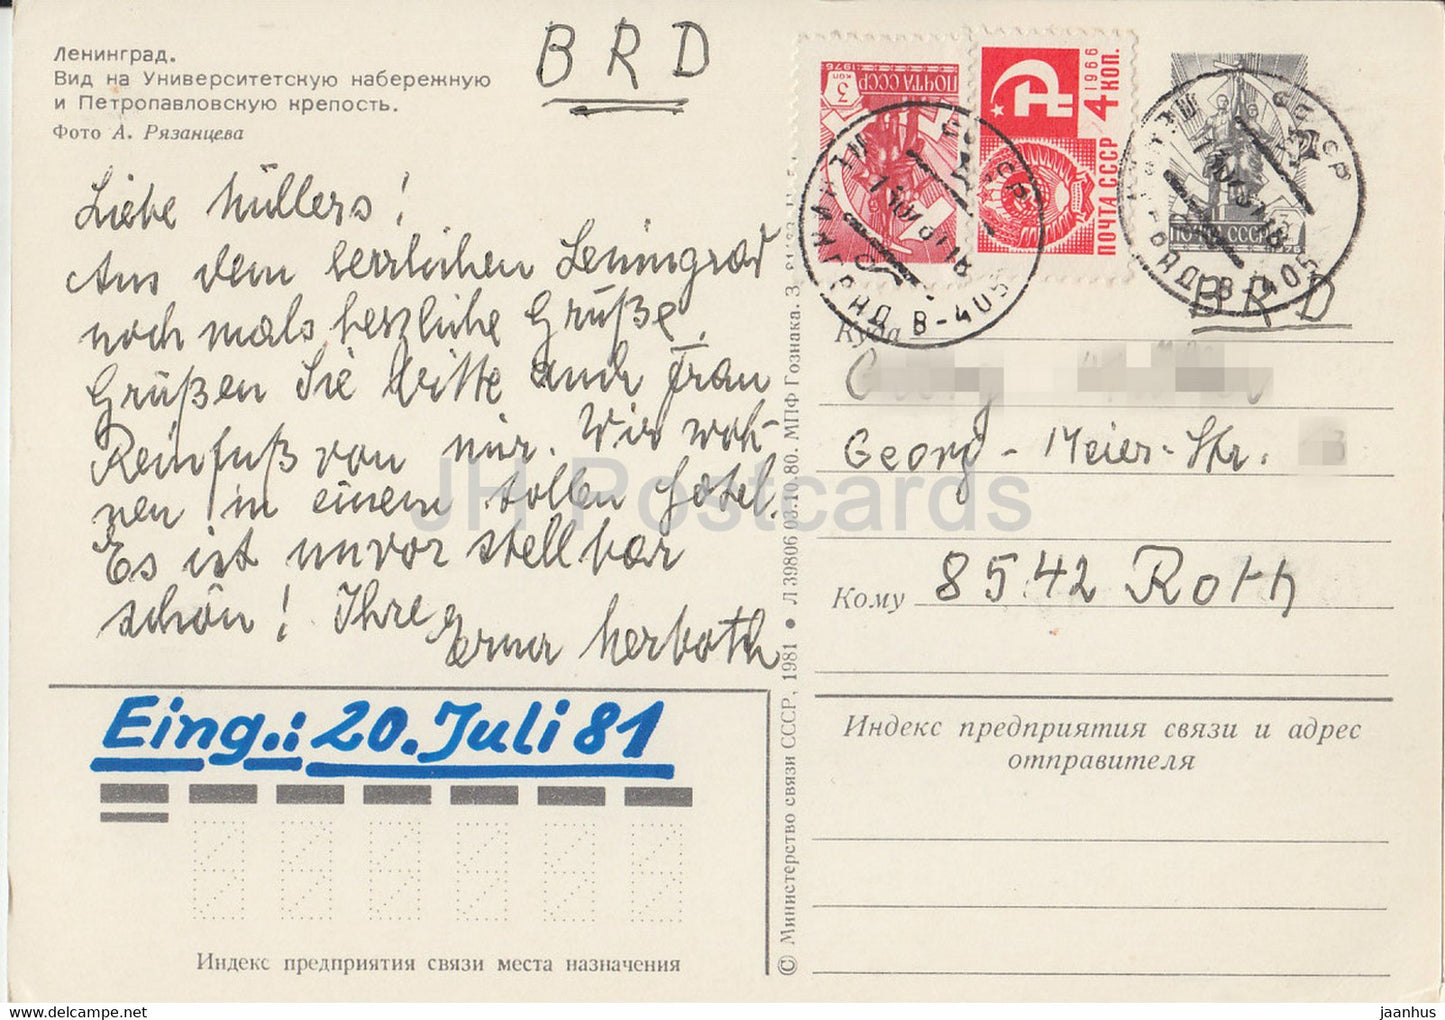 Ленинград.
Вид на Университетскую набережную
и Петропавловскую крепость.
Фото А. Рязанцева
BRD
Liebe Müllers!
Aus dem herrlichen Leningrad
noch mals herzliche Grüße.
Grüßen Sie bitte auch Frau
Reinfuß von mir. Wir woh-
nen in einem tollen Hotel.
Es ist unvor stellbar
schön! Ihre Erna Herboth
Eing.: 20. Juli 81
Индекс предприятия связи места назначения
© Министерство связи СССР, 1981 • Л 39806 03.10.80. МПФ Гознака. З.
1976
3 КОП
ПОЧТА СССР
1966
4 КОП.
ПОЧТА СССР
ПОЧТА СССР
СССР
В-405
СССР
В-405
BRD
Куда
Georg-Meier-Str.
Кому 8542 Roth
Индекс предприятия связи и адрес
отправителя
JH Postcards
www.delcampe.net
jaanhus